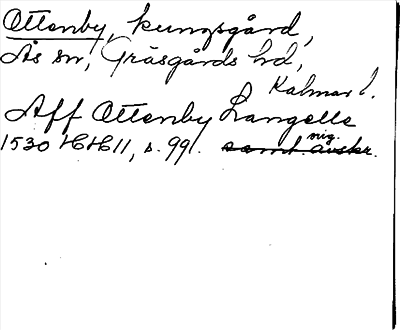 Ottenby, kungsgård,
Ås sn, Gräsgårds hd,
Kalmar l.
Aff Ottenby Langelle
orig.
1530 HH 11, s. 99. samt. avskr.